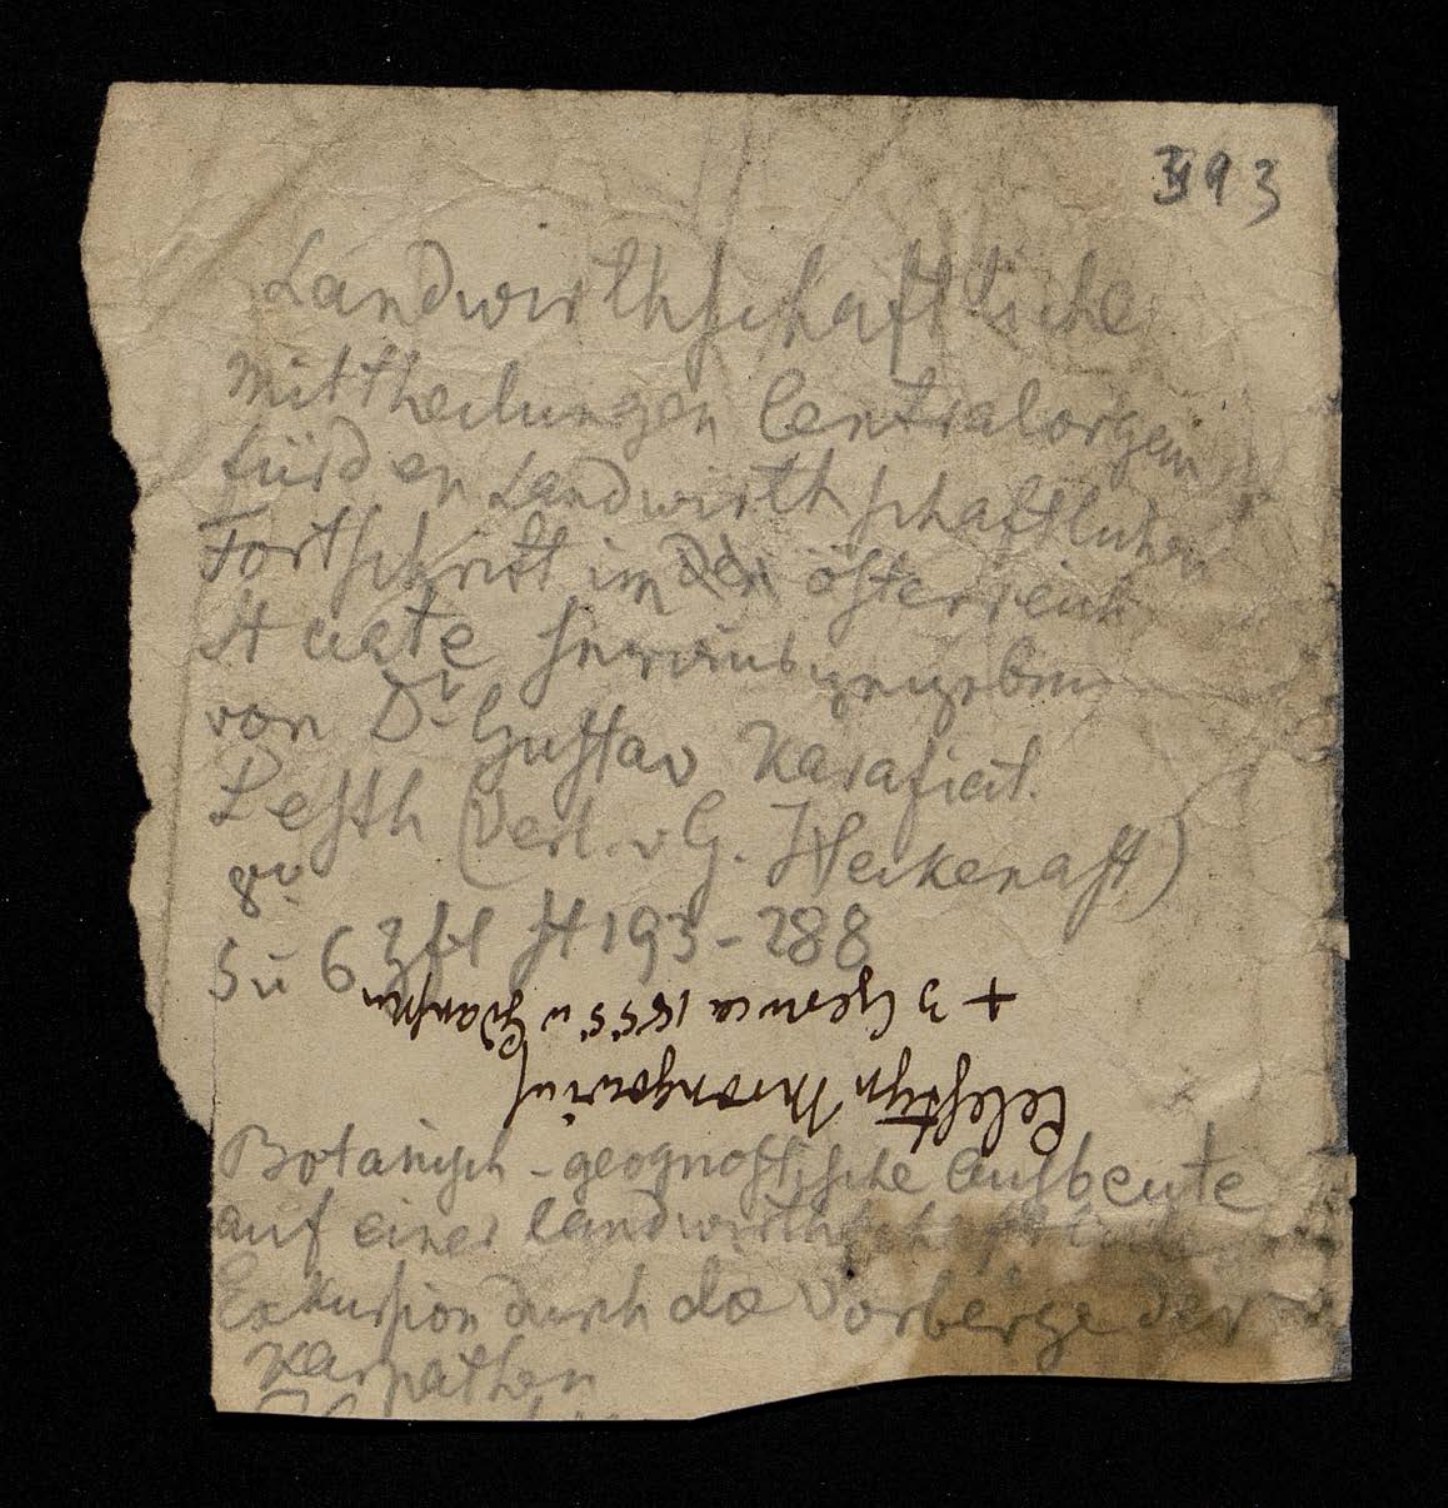 393
Landwirthschaftliche
Mittheilungen Centralorgan
für den Landwirthschaftlichen
Fortschritt im den österreich
Staate herausgegeben
von Dr Gustav Karafiat.
Pesth (Verl. v G. Heckenast)
8v
5 u 6 Hft St 193-288
Celestyn Mrongowius
+ 3 Czerwca 1855 w Gdansku
Botanisch-geognostische Ausbeute
auf einer landwirthschaftlichen
Exkursion durch die Vorberge der
Karpathen